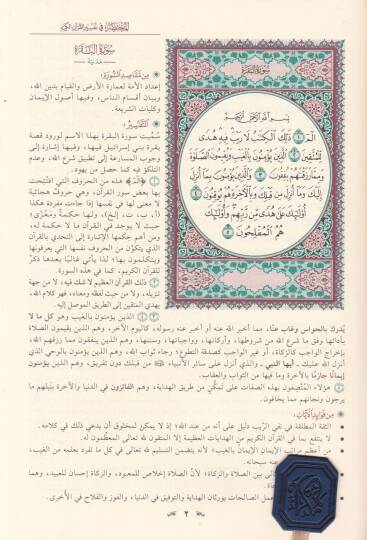 المختصر في تفسير القرآن الكريم
سورة البقرة
مدنية
من مقاصد السورة:
إعداد الأمة لعمارة الأرض والقيام بدين الله،
وبيان أقسام الناس، وفيها أصول الإيمان
وكليات الشريعة.
التفسير:
سُمِّيت سورة البقرة بهذا الاسم لورود قصة
بقرة بني إسرائيل فيها، وفيها إشارة إلى
وجوب المسارعة إلى تطبيق شرع الله، وعدم
التلكؤ فيه كما حصل من يهود.
هذه من الحروف التي افتُتحت
بها بعض سور القرآن، وهي حروف هجائية
لا معنى لها في نفسها إذا جاءت مفردة هكذا
(أ، ب، ت، إلخ)، ولها حكمة ومغزًى؛
حيث لا يوجد في القرآن ما لا حكمة له،
ومن أهم حكمها الإشارة إلى التحدي بالقرآن
الذي يتكوَّن من الحروف نفسها التي يعرفونها
ويتكلمون بها؛ لذا يأتي غالبًا بعدها ذكرٌ
للقرآن الكريم، كما في هذه السورة.
ذلك القرآن العظيم لا شك فيه، لا من جهة
تنزيله، ولا من حيث لفظه ومعناه، فهو كلام الله،
يهدي المتقين إلى الطريق الموصل إليه.
الذين يؤمنون بالغيب وهو كل ما لا
سورة البقرة
بسم الله الرحمن الرحيم
الٓمٓ ١ ذَٰلِكَ ٱلْكِتَٰبُ لَا رَيْبَ فِيهِ هُدًى
لِّلْمُتَّقِينَ ٢ ٱلَّذِينَ يُؤْمِنُونَ بِٱلْغَيْبِ وَيُقِيمُونَ ٱلصَّلَوٰةَ
وَمِمَّا رَزَقْنَٰهُمْ يُنفِقُونَ ٣ وَٱلَّذِينَ يُؤْمِنُونَ بِمَآ أُنزِلَ
إِلَيْكَ وَمَآ أُنزِلَ مِن قَبْلِكَ وَبِٱلْأٓخِرَةِ هُمْ يُوقِنُونَ ٤
أُو۟لَٰٓئِكَ عَلَىٰ هُدًى مِّن رَّبِّهِمْ وَأُو۟لَٰٓئِكَ
هُمُ ٱلْمُفْلِحُونَ ٥
يُدرك بالحواس وغاب عنّا، مما أخبر الله عنه أو أخبر عنه رسوله، كاليوم الآخر، وهم الذين يقيمون الصلاة
بأدائها وفق ما شرع الله من شروطها، وأركانها، وواجباتها، وسننها، وهم الذين ينفقون مما رزقهم الله،
بإخراج الواجب كالزكاة، أو غير الواجب كصدقة التطوع؛ رجاء ثواب الله، وهم الذين يؤمنون بالوحي الذي
أنزل الله عليك - أيها النبي - والذي أنزل على سائر الأنبياء من قبلك دون تفريق، وهم الذين يؤمنون
إيمانًا جازمًا بالآخرة وما فيها من الثواب والعقاب.
هؤلاء المتَّصِفون بهذه الصفات على تمكُّنٍ من طريق الهداية، وهم الفائزون في الدنيا والآخرة بنيلهم ما
يرجون ونجاتهم مما يخافون.
من فوائد الآيات:
• الثقة المطلقة في نفي الرَّيب دليل على أنه من عند الله؛ إذ لا يمكن لمخلوق أن يدعي ذلك في كلامه.
• لا ينتفع بما في القرآن الكريم من الهدايات العظيمة إلا المتقون لله تعالى المعظِّمون له.
• من أعظم مراتب الإيمان الإيمانُ بالغيب؛ لأنه يتضمن التسليم لله تعالى في كل ما تفرد بعلمه من الغيب،
عنه سبحانه.
لى بين الصلاة والزكاة؛ لأنَّ الصلاة إخلاص للمعبود، والزكاة إحسان للعبيد، وهما
عمل الصالحات يورثان الهداية والتوفيق في الدنيا، والفوز والفلاح في الأخرى.
٢